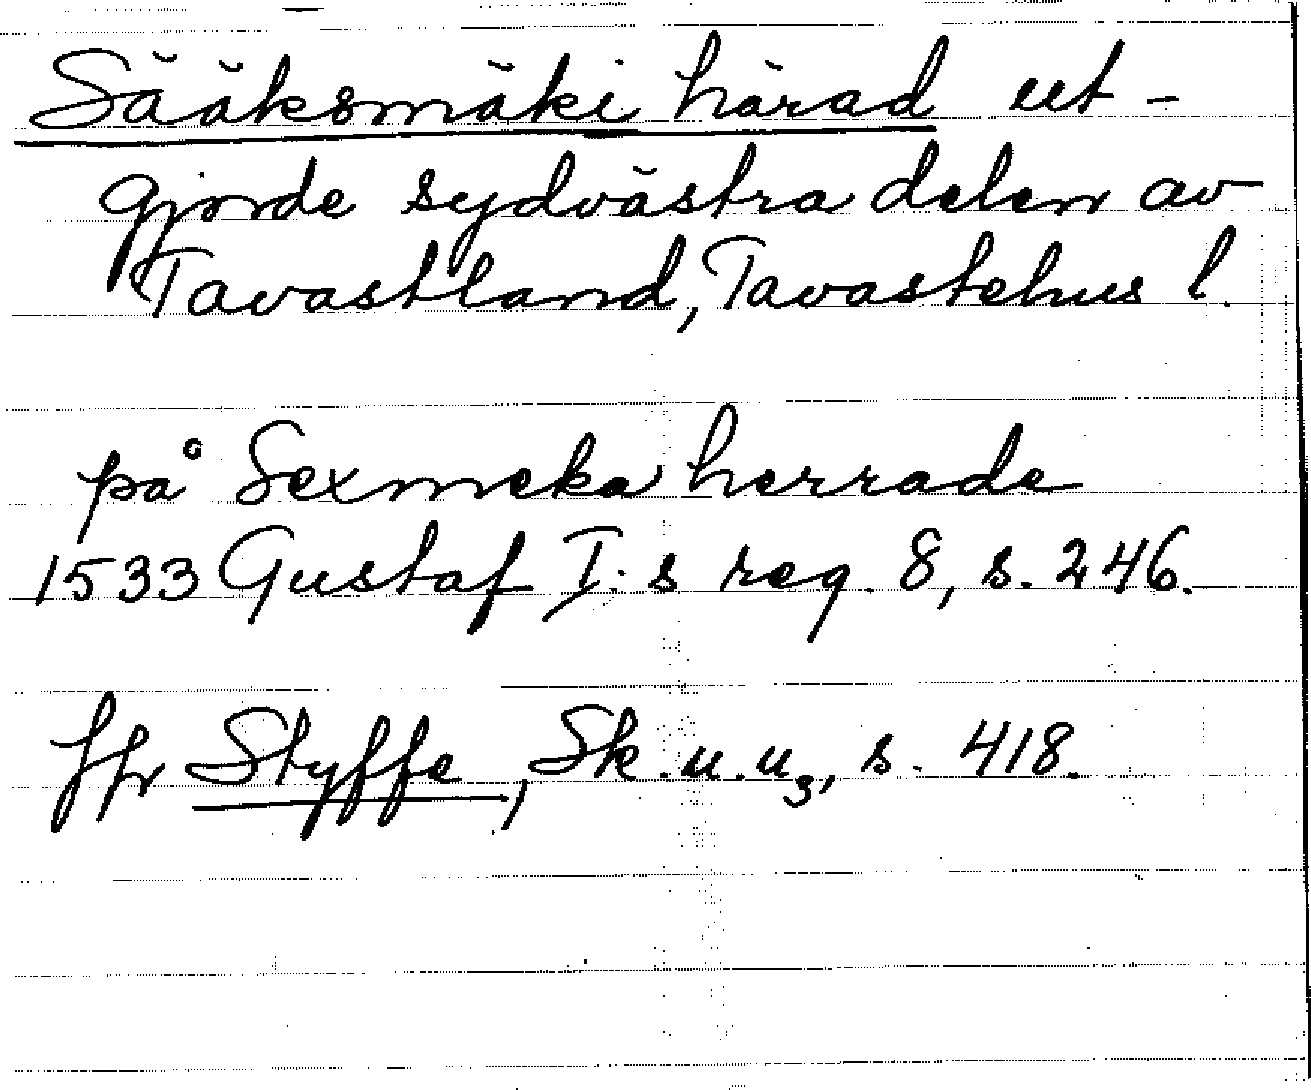 Sääksmäki härad ut-
gjorde sydvästra delen av
Tavastland, Tavastehus l.
på Sexmeka herrade
1533 Gustaf I:s reg. 8, s. 246.
Jfr Styffe, Sk.u.u3, s. 418.